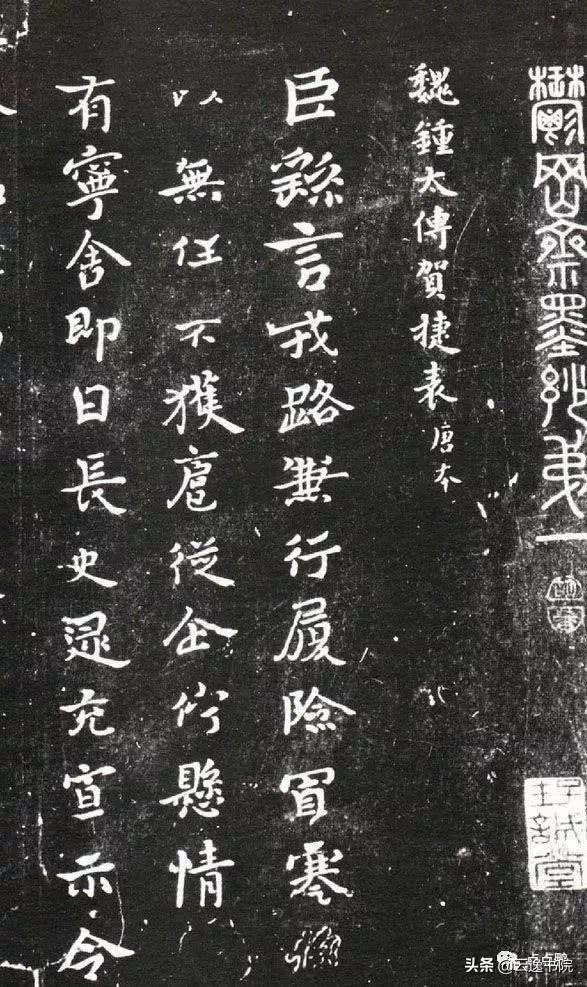 鬱岡齋墨妙弟一
魏鍾太傅賀捷表 唐本
臣繇言戎路兼行履險冒寒
以無任不獲扈從企佇懸情
有寧舍即日長史逯充宣示令
头条 @云逸书院